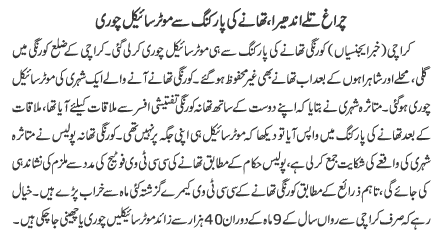 چراغ تلے اندھیرا، تھانے کی پارکنگ سے موٹر سائیکل چوری
کراچی (خبر ایجنسیاں) کورنگی تھانے کی پارکنگ سے ہی موٹر سائیکل چوری کر لی گئی۔ کراچی کے ضلع کورنگی میں
گلی، محلے اور شاہراہوں کے بعد اب تھانے بھی غیر محفوظ ہو گئے۔ کورنگی تھانے آنے والے ایک شہری کی موٹر سائیکل
چوری ہو گئی۔ متاثرہ شہری نے بتایا کہ اپنے دوست کے ساتھ تھانہ کورنگی تفتیشی افسر سے ملاقات کیلئے آیا تھا، ملاقات
کے بعد تھانے کی پارکنگ میں واپس آیا تو دیکھا کہ موٹر سائیکل ہی اپنی جگہ پر نہیں تھی۔ کورنگی تھانہ پولیس نے متاثرہ
شہری کی واقعے کی شکایت جمع کر لی ہے، پولیس حکام کے مطابق تھانے کی سی سی ٹی وی فوٹیج کی مدد سے ملزم کی نشاندہی
کی جائے گی، تاہم ذرائع کے مطابق کورنگی تھانے کے سی سی ٹی وی کیمرے گزشتہ کئی ماہ سے خراب پڑے ہیں۔ خیال
رہے کہ صرف کراچی سے رواں سال کے 9 ماہ کے دوران 40 ہزار سے زائد موٹر سائیکلیں چوری یا چھینی جا چکی ہیں۔